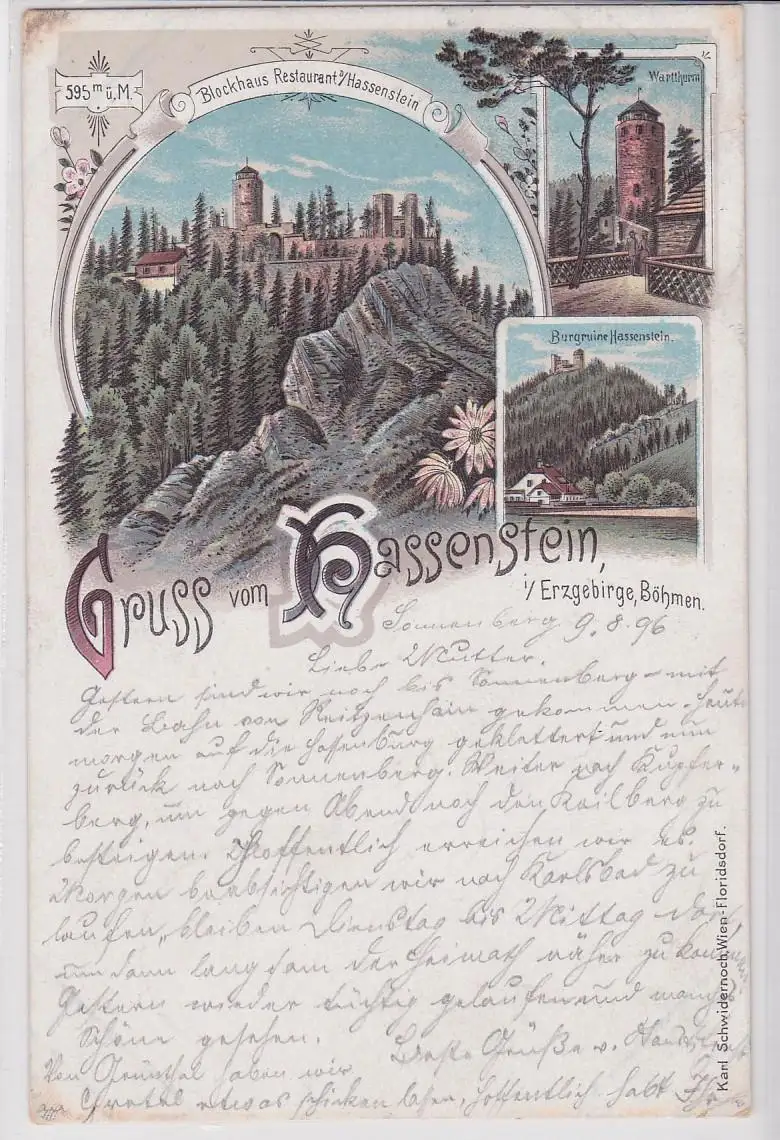 595 m ü. M.
Blockhaus Restaurant a/Hassenstein
Wartthurm
Burgruine Hassenstein.
Gruss vom Hassenstein,
i/ Erzgebirge, Böhmen.
Sonnenberg 9.8.96
Liebe Mutter.
Gestern sind wir noch bis Sonnenberg mit
der Bahn von Reitzenhain gekommen. Heute
morgen auf die Hassenburg geklettert und nun
zurück nach Sonnenberg. Weiter nach Kupfer-
berg, um gegen Abend noch den Keilberg zu
besteigen. Hoffentlich erreichen wir es.
Morgen beabsichtigen wir nach Karlsbad zu
laufen, bleiben Dienstag bis Mittag dort
um dann langsam der Heimath näher zu kommen
Gestern wieder tüchtig gelaufen und manches
Schöne gesehen.
Beste Grüße v.
Von Grünthal haben wir
Gretel etwas schicken lassen, hoffentlich habt Ihr
Karl Schwidernoch, Wien-Floridsdorf.